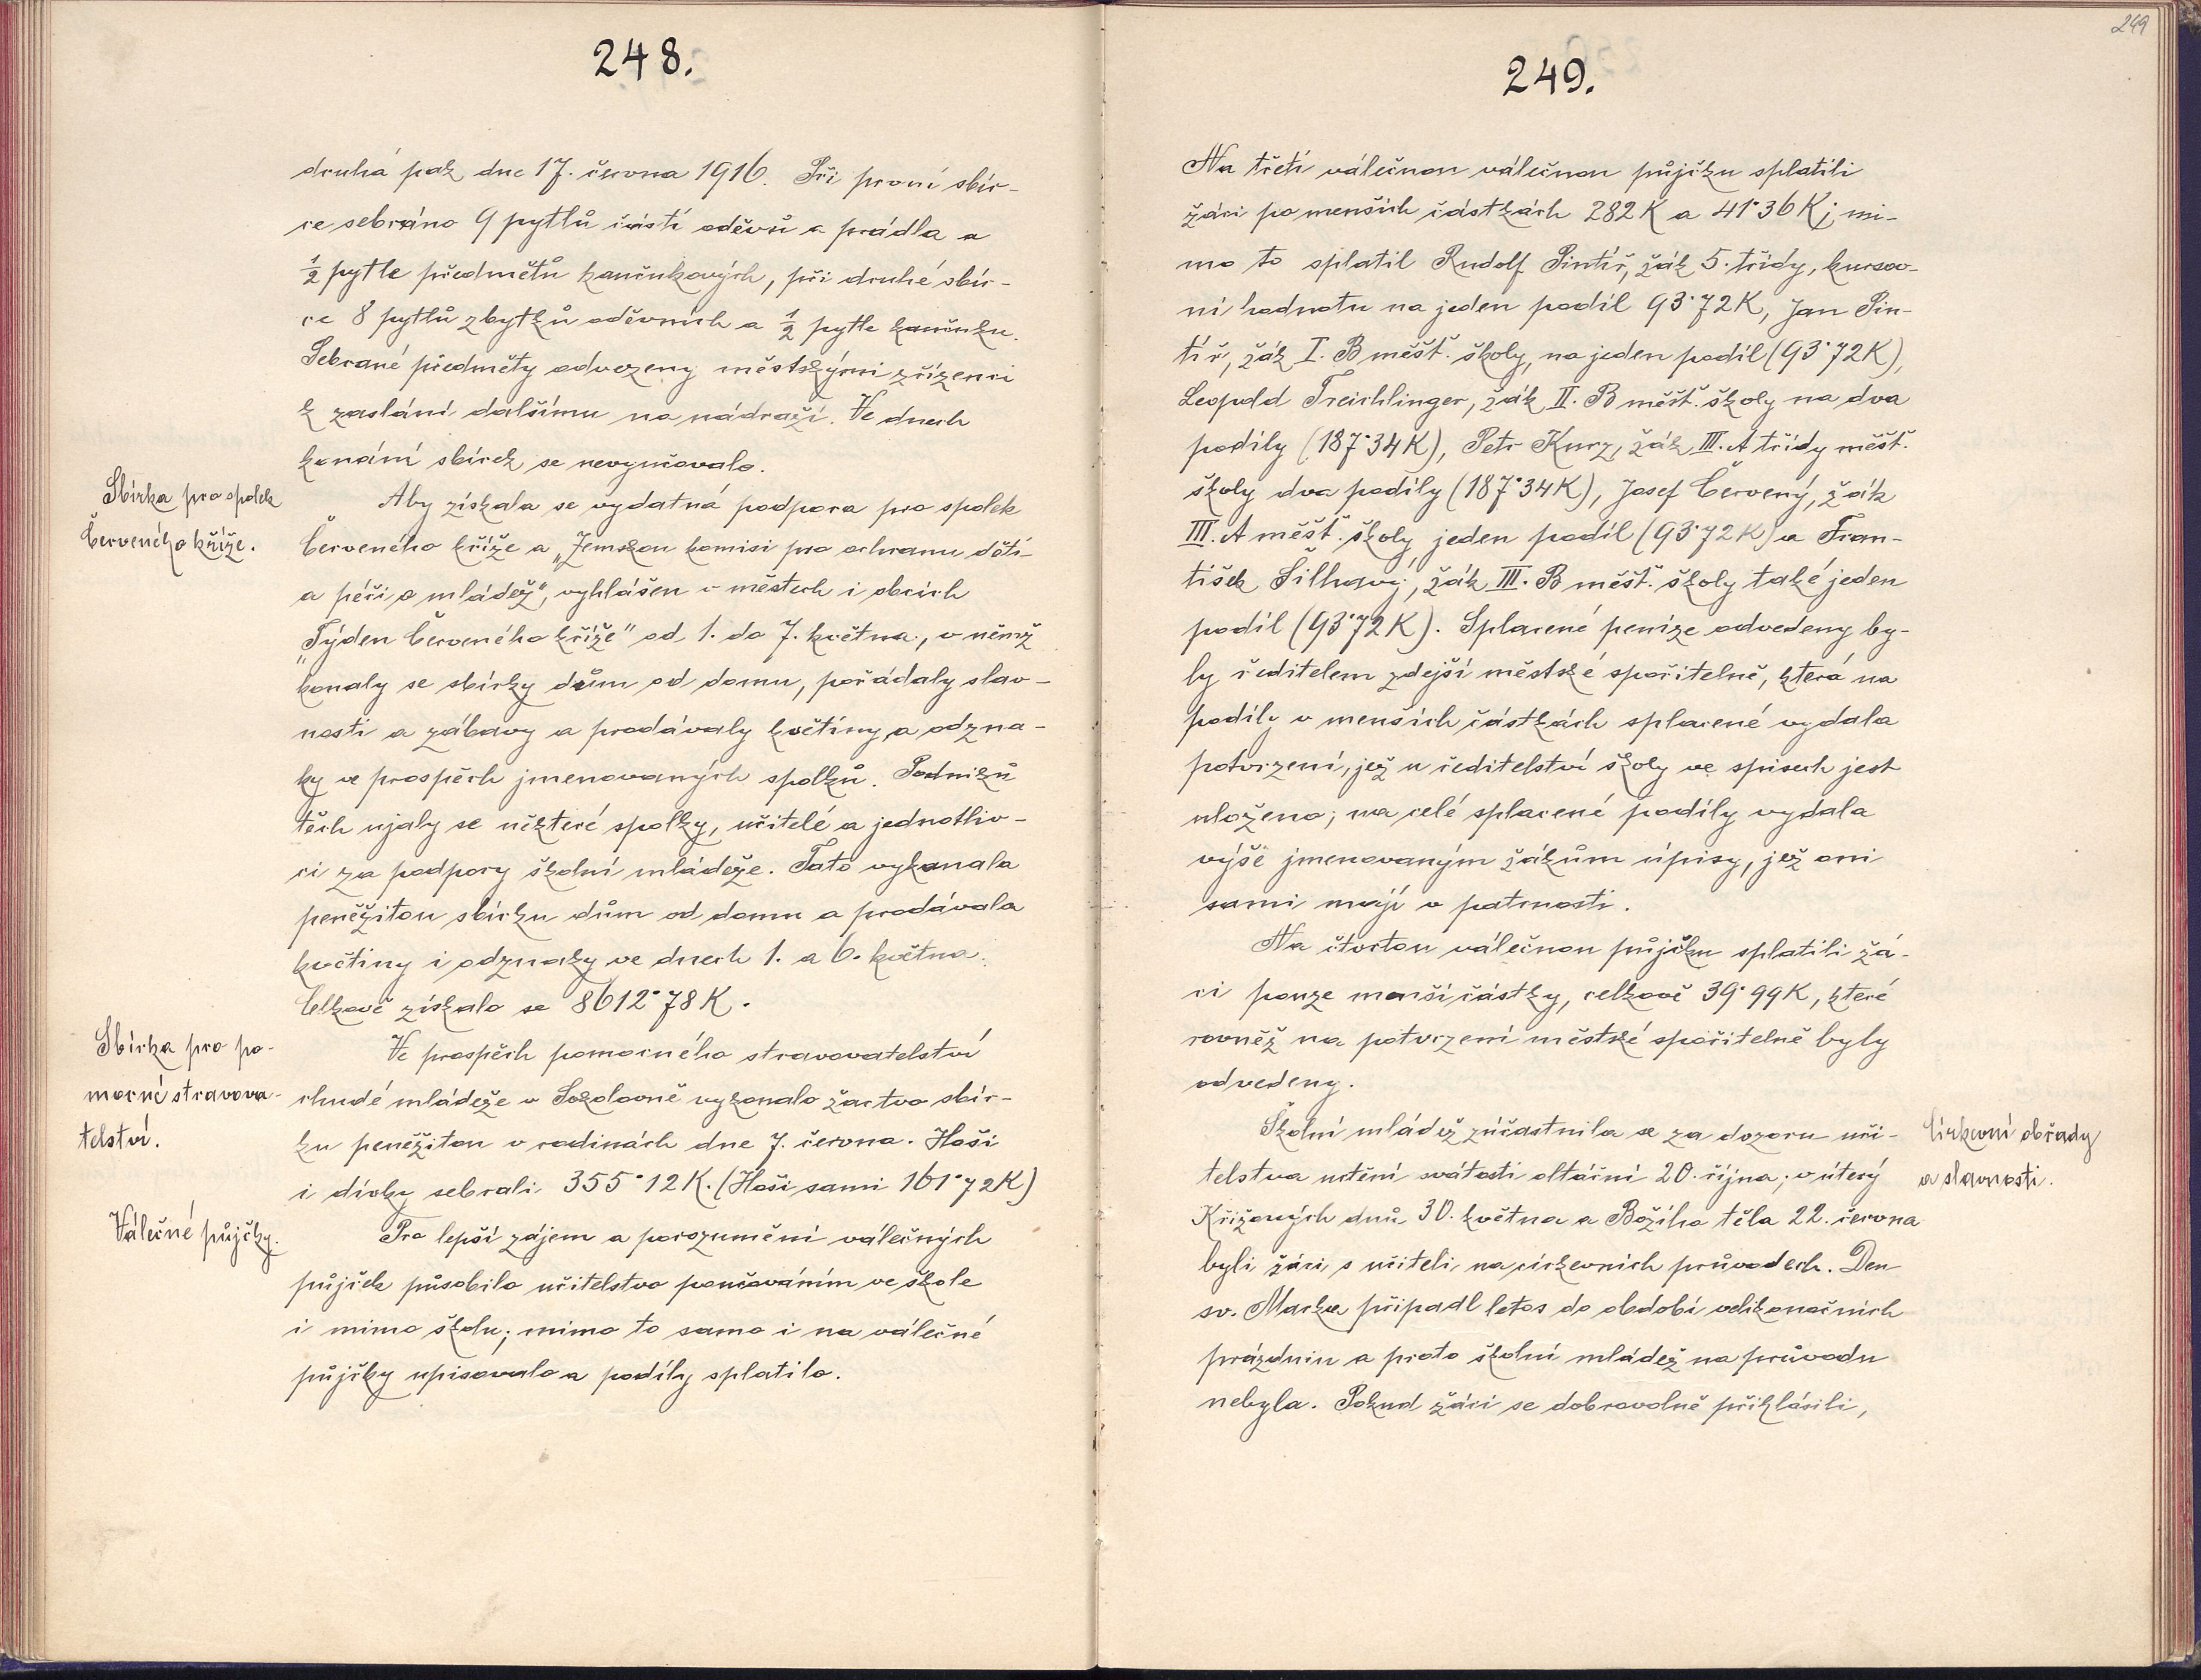 248.
druhá pak dne 17. června 1916. Při první sbír-
ce sebráno 9 pytlů částí oděvů a prádla a
½ pytle předmětů kaučukových, při druhé sbír-
ce 8 pytlů zbytků oděvních a ½ pytle kaučuku.
Sebrané předměty odvezeny městskými zřízenci
k zaslání dalšímu na nádraží. Ve dnech
konání sbírek se nevyučovalo.
Sbírka pro spolek
Červeného kříže.
Aby získala se vydatná podpora pro spolek
Červeného kříže a „Zemskou komisi pro ochranu dětí
a péči o mládež", vyhlášen v městech i obcích
„Týden Červeného kříže" od 1. do 7. května, v němž
konaly se sbírky dům od domu, pořádaly slav-
nosti a zábavy a prodávaly květiny a odzna-
ky ve prospěch jmenovaných spolků. Podniků
těch ujaly se některé spolky, učitelé a jednotliv-
ci za podpory školní mládeže. Tato vykonala
peněžitou sbírku dům od domu a prodávala
květiny i odznaky ve dnech 1. a 6. května.
Celkově získalo se 8612·78 K.
Sbírka pro po-
mocné stravova-
telství.
Ve prospěch pomocného stravovatelství
chudé mládeže v Sokolovně vykonalo žactvo sbír-
ku peněžitou v rodinách dne 7. června. Hoši
i dívky sebrali 355·12 K. (Hoši sami 161·72 K)
Válečné půjčky.
Pro lepší zájem a porozumění válečných
půjček působilo učitelstvo poučováním ve škole
i mimo školu; mimo to samo i na válečné
půjčky upisovalo a podíly splatilo.
249
249.
Na třetí válečnou válečnou půjčku splatili
žáci po menších částkách 282 K a 41·36 K; mi-
mo to splatil Rudolf Pintíř, žák 5. třídy, kursov-
ní hodnotu na jeden podíl 93·72 K, Jan Pin-
tíř, žák I. B měšť. školy, na jeden podíl (93·72 K),
Leopold Treichlinger, žák II. B měšť. školy na dva
podíly (187·34 K), Petr Kurz, žák III. A třídy měšť.
školy dva podíly (187·34 K), Josef Červený, žák
III. A měšť. školy jeden podíl (93·72 K) a Fran-
tišek Šilhavý, žák III. B měšť. školy také jeden
podíl (93·72 K). Splacené peníze odvedeny by-
ly ředitelem zdejší městské spořitelně, která na
podíly v menších částkách splacené vydala
potvrzení, jež u ředitelství školy ve spisech jest
uloženo; na celé splacené podíly vydala
výše jmenovaným žákům úpisy, jež oni
sami mají v patrnosti.
Na čtvrtou válečnou půjčku splatili žá-
ci pouze menší částky, celkově 39·99 K, které
rovněž na potvrzení městské spořitelně byly
odvedeny.
Církevní obřady
a slavnosti.
Školní mládež zúčastnila se za dozoru uči-
telstva uctění svátosti oltářní 20. října; v úterý
Křížových dnů 30. května a Božího těla 22. června
byli žáci s učiteli na církevních průvodech. Den
sv. Marka připadl letos do období velikonočních
prázdnin a proto školní mládež na průvodu
nebyla. Pokud žáci se dobrovolně přihlásili,